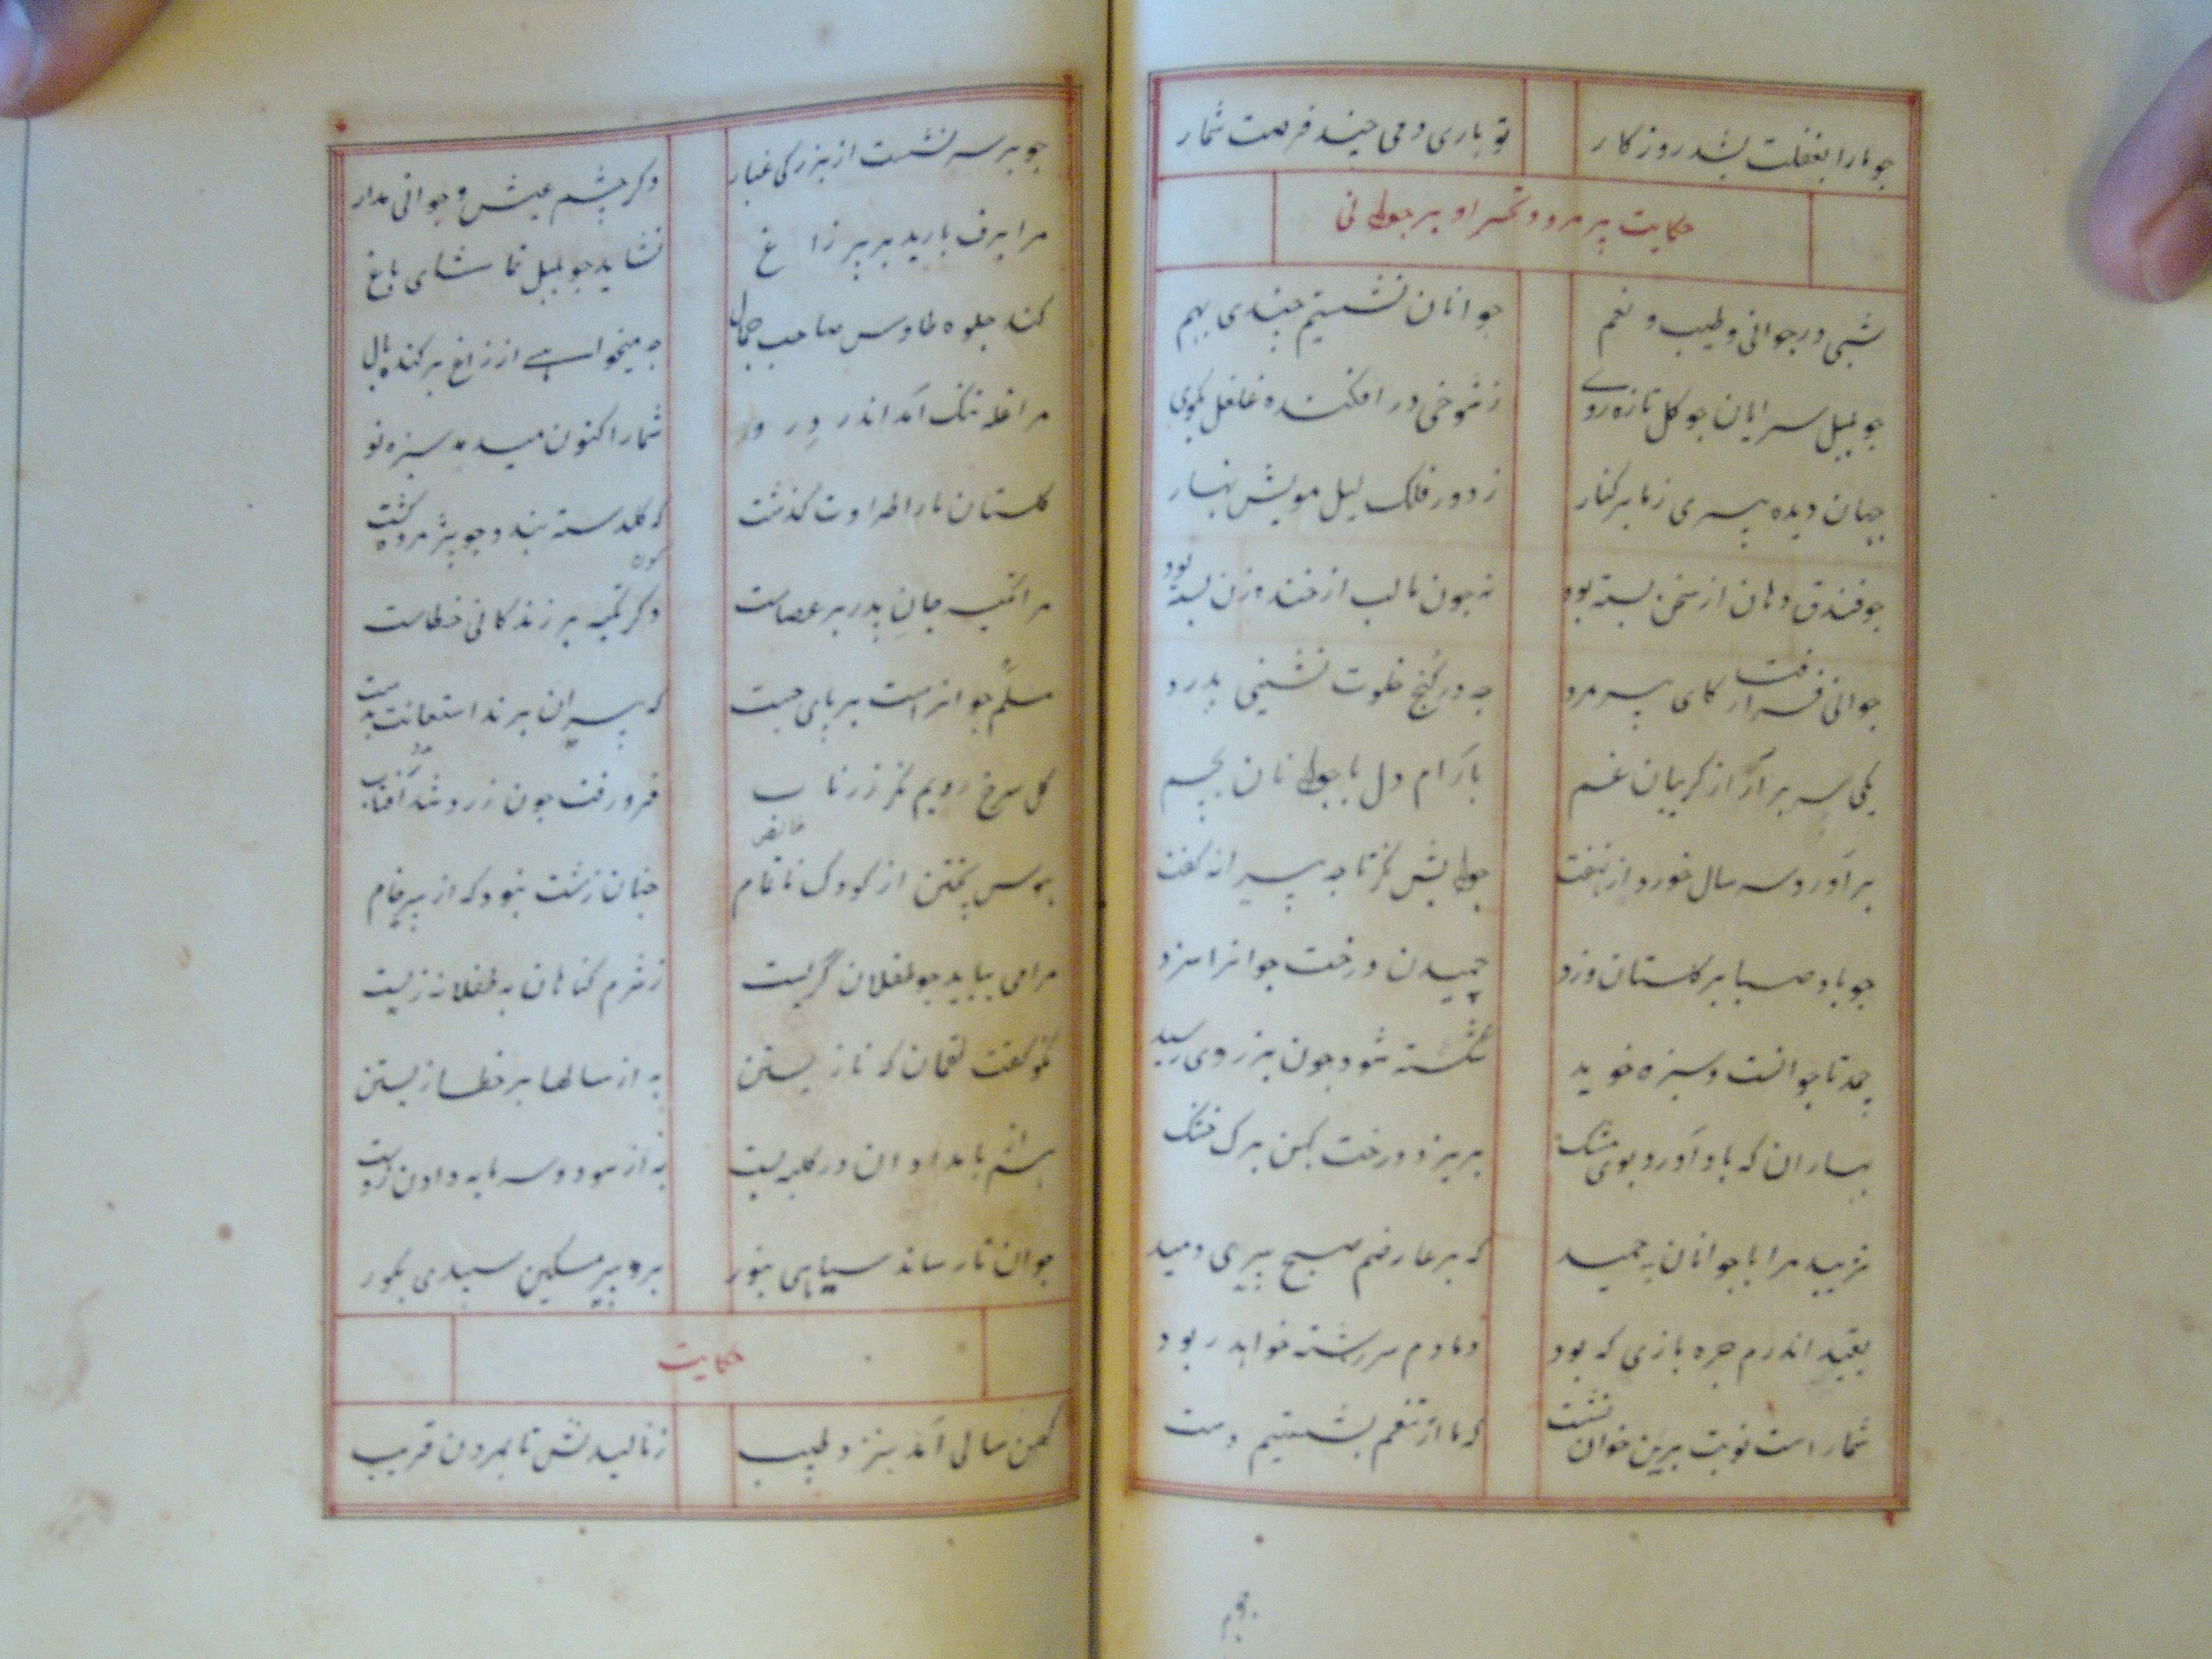 چو مارا بغفلت بشد روزکار تو باری دمی چند فرصت شمار
حکایت پیر مرد و تحسر او بر جوانی
شبی در جوانی و طیب و نعم جوانان نشستیم چندی بهم
چو بلبل سرایان چو کل تازه روے ز شوخی در افکنده غلغل بکوی
جهان دیده پیری ز ما بر کنار ز دور فلک لیل مویش نهار
چو فندق دهان از سخن بسته بود نه چون ما لب از خنده زن پسته بود
جوانی فرا رفت کای پیر مرد چه در کُنج خلوت نشینی بدرد
یکی سر برآر از کریبان غم بآرام دل با جوانان بچم
برآورد سر سال خورد از نهفت جوابش نکر تا چه پیرانه کفت
چو باد صبا بر کلستان وزد چمیدن درخت جوانرا سزد
چمد تا جوانست و سبزه خوید شکسته شود چون بزردی رسید
بهاران که باد آورد بوی مشک بریزد درخت کهن برک خشک
نزیبد مرا با جوانان چمید که بر عارضم صبح پیری دمید
بقید اندرم جره بازی که بود دمادم سر رشته خواهد ربود
شمار است نوبت برین خوان نشست که ما از تنعم بشستیم دست
چو بر سر نشست از بزرکی غبار دکر چشم عیش و جوانی مدار
مرا برف بارید بر پر زاغ نشاید چو بلبل تماشای باغ
کند جلوه طاوس صاحب جمال چه میخواهے از زاغ برکنده بال
مرا غله تنک آمد اندر دِرو شمارا کنون میدمد سبزه نو
کلستان مارا طراوت کذشت که کلدسته بندد چو پژمرده کشت
مرا تکیه جانِ پدر بر عصاست دکر تکیه بر زندکانی خطاست
مسلّم جوانراست بر پای جست که پیران برند استعانت بدست
کل سرخ رویم نکر زر ناب فرو رفت چون زرد شد آفتاب
هوس پختن از کودک ناتمام چنان زشت نبود که از پیر خام
مرا می بباید چو طفلان کریست ز شرم کناهان نه طفلانه زیست
نکو کفت لقمان که نازیستن به از سالها بر خطا زیستن
هم از بامدادان در کلبه بست به از سود و سرمایه دادن ز دست
جوان تا رساند سیاهی بنور برد پیر مسکین سپیدی بکور
حکایت
کهن سالی آمد بنزد طبیب ز نالیدنش تا بمردن قریب